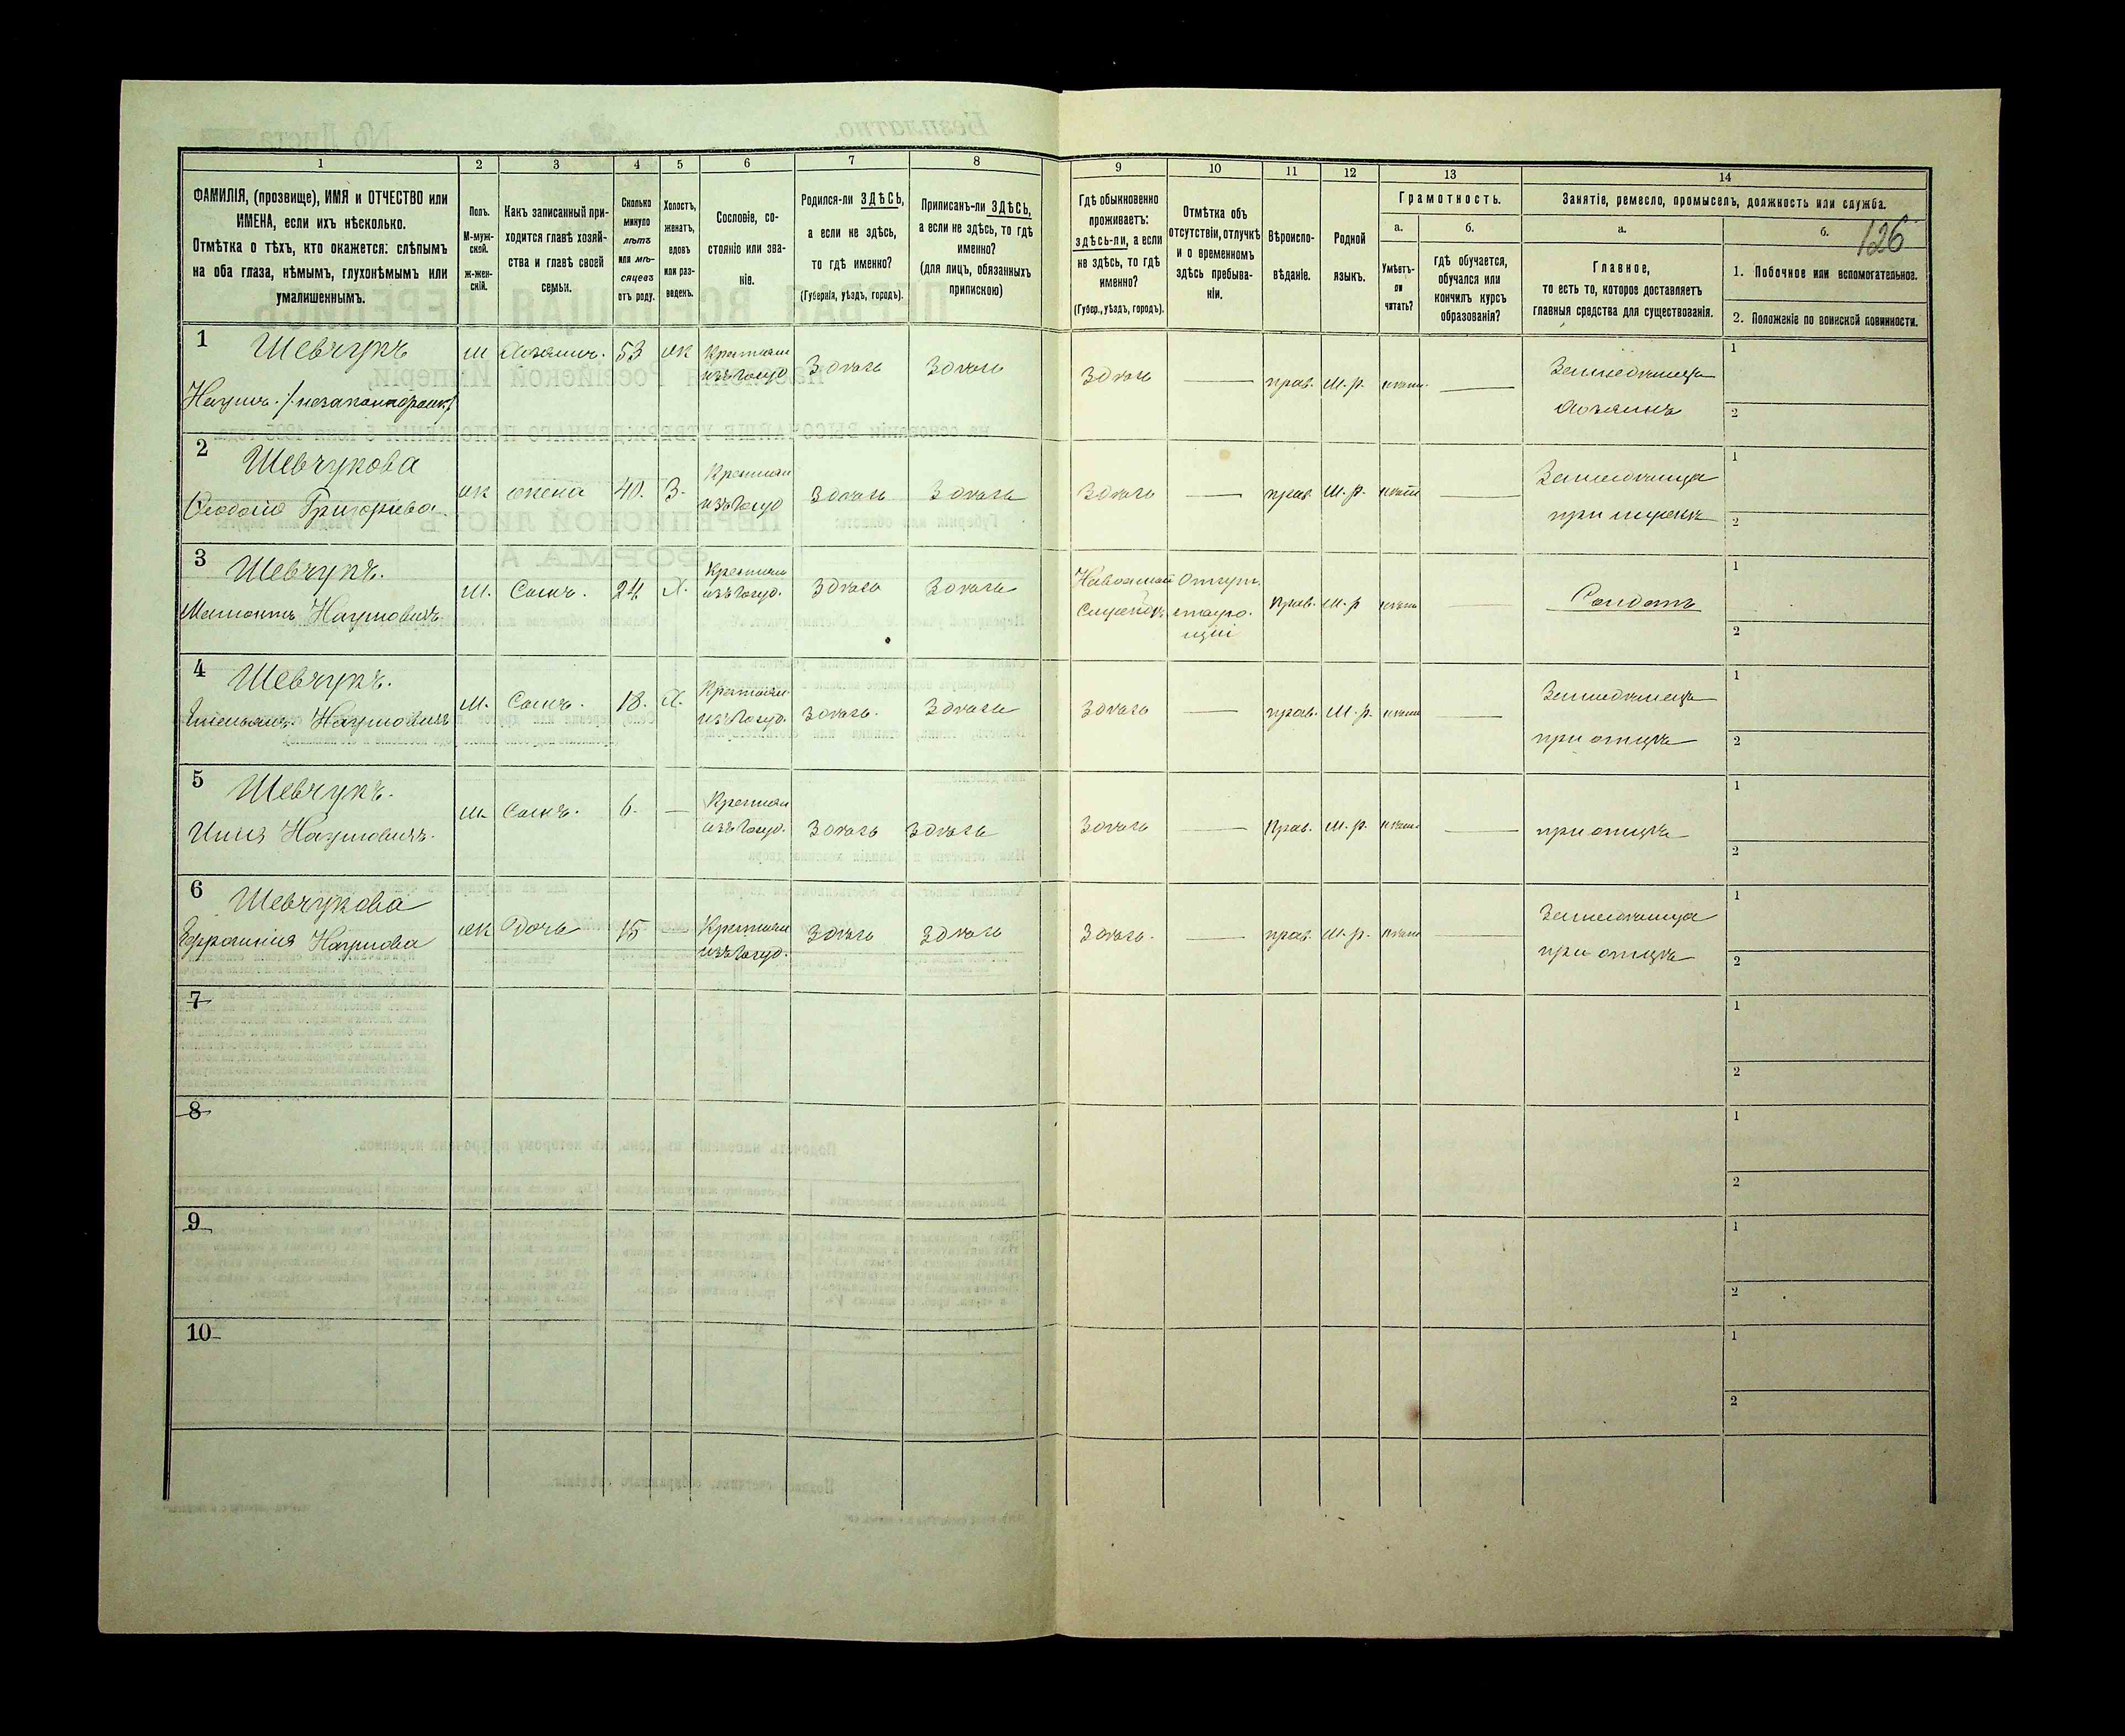 126
1 2 3 4 5 6 7 8 9 10 11 12 13 14
ФАМИЛІЯ, (прозвище), ИМЯ и ОТЧЕСТВО или
ИМЕНА, если ихъ нѣсколько.
Отмѣтка о тѣхъ, кто окажется: слѣпымъ
на оба глаза, нѣмымъ, глухонѣмымъ или
умалишеннымъ.
Полъ.
М-муж-
ской.
ж-жен-
скій.
Какъ записанный при-
ходится главѣ хозяй-
ства и главѣ своей
семьи.
Сколько
минуло
лѣтъ
или мѣ-
сяцевъ
отъ роду.
Холостъ,
женатъ,
вдовъ
или раз-
веденъ.
Сословіе, со-
стояніе или зва-
ніе.
Родился-ли ЗДѢСЬ,
а если не здѣсь,
то гдѣ именно?
(Губернія, уѣздъ, городъ).
Приписанъ-ли ЗДѢСЬ,
а если не здѣсь, то гдѣ
именно?
(для лицъ, обязанныхъ
припискою)
Гдѣ обыкновенно
проживаетъ:
здѣсь-ли, а если
не здѣсь, то гдѣ
именно?
(Губер., уѣздъ, городъ).
Отмѣтка объ
отсутствіи, отлучкѣ
и о временномъ
здѣсь пребыва-
ніи.
Вѣроиспо-
вѣданіе.
Родной
языкъ.
Грамотность.
а.
Умѣетъ-
ли
читать?
б.
гдѣ обучается,
обучался или
кончилъ курсъ
образованія?
Занятіе, ремесло, промыселъ, должность или служба.
а.
Главное,
то есть то, которое доставляетъ
главныя средства для существованія.
б.
1. Побочное или вспомогательное.
2. Положеніе по воинской повинности.
1 Шевчукъ
Наумъ
м Хозяинъ. 53 ж Крестьян
изъ госуд Здѣсь Здѣсь Здѣсь — прав. м.р. — Земледѣлецъ
хозяинъ
1
2
2 Шевчукова
Ѳеодосія Григорьева
ж жена 40. З. Крестьян
изъ госуд Здѣсь Здѣсь Здѣсь — прав. м.р. — Земледѣлица
при мужѣ
1
2
3 Шевчукъ.
Наумовичъ
м. Сынъ. 24 Х. Крестьян
изъ госуд. Здѣсь Здѣсь Прав. м.р — Солдатъ
1
2
4 Шевчукъ.
Емельянъ Наумовичъ
м. Сынъ. 18. Х. Крестьян.
изъ госуд. Здѣсь. Здѣсь Здѣсь — прав. м.р. — Земледѣлецъ
при отцѣ
1
2
5 Шевчукъ.
Наумовичъ.
м Сынъ. 6. — Крестьян
изъ госуд. Здѣсь Здѣсь Здѣсь — Прав. м.р. — при отцѣ
1
2
6 Шевчукова
Наумова
ж Дочь 15 Крестьян
изъ госуд. Здѣсь Здѣсь Здѣсь. — прав. м.р. — Земледѣлица
при отцѣ
1
2
7
1
2
8
1
2
9
1
2
10
1
2